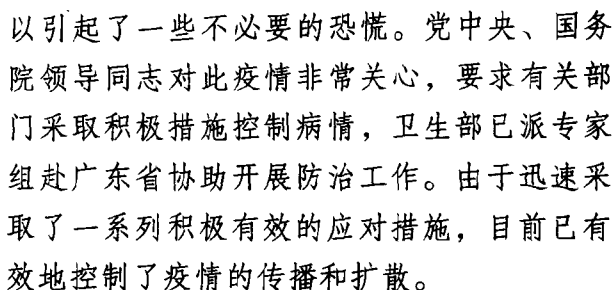 以引起了一些不必要的恐慌。党中央、国务
院领导同志对此疫情非常关心，要求有关部
门采取积极措施控制病情，卫生部已派专家
组赴广东省协助开展防治工作。由于迅速采
取了一系列积极有效的应对措施，目前已有
效地控制了疫情的传播和扩散。